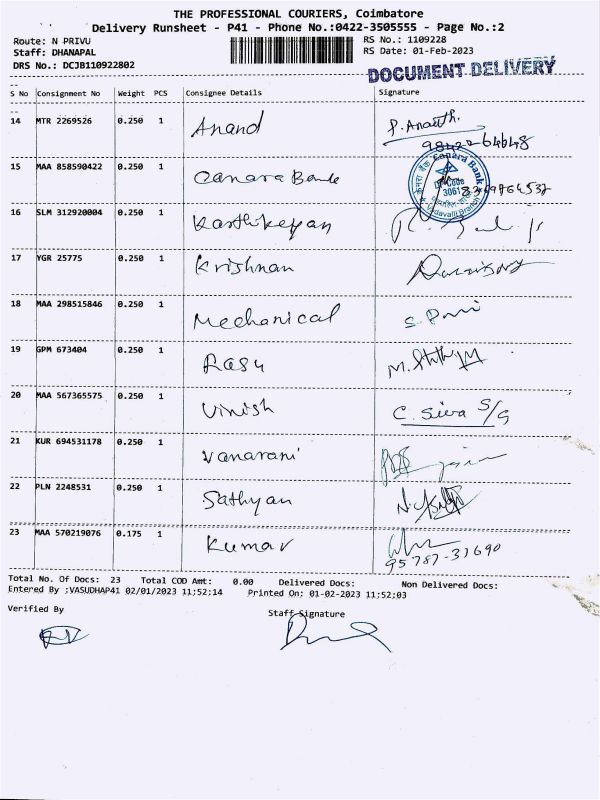 THE PROFESSIONAL COURIERS, Coimbatore
Delivery Runsheet - P41 - Phone No.:0422-3505555 - Page No.:2
Route: N PRIVU RS No.: 1109228
Staff: DHANAPAL RS Date: 01-Feb-2023
DRS No.: DCJB110922802
DOCUMENT DELIVERY
S No Consignment No Weight PCS Consignee Details Signature
14 MTR 2269526 0.250 1 Anand P. Ananth.
98422 64648
15 MAA 858590422 0.250 1 Canara Bank
केनरा बैंक Canara Bank
DP Code
3061
Vadavalli Branch
16 SLM 312920004 0.250 1 Karthikeyan
17 YGR 25775 0.250 1 Krishnan
18 MAA 298515846 0.250 1 Mechanical
19 GPM 673404 0.250 1 Rasu
20 MAA 567365575 0.250 1 Vinish C. Siva S/G
21 KUR 694531178 0.250 1 Vanarani
22 PLN 2248531 0.250 1 Sathyan
23 MAA 570219076 0.175 1 Kumar
95787-31690
Total No. Of Docs: 23 Total COD Amt: 0.00 Delivered Docs: Non Delivered Docs:
Entered By ;VASUDHAP41 02/01/2023 11:52:14 Printed On: 01-02-2023 11:52:03
Verified By Staff Signature